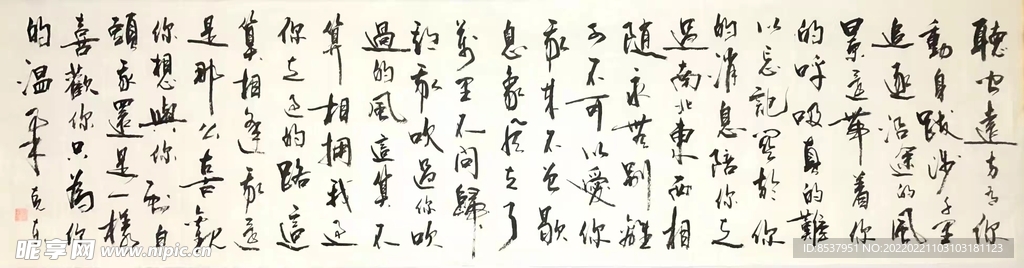 聽闻遠方有你
動身跋涉千里
追逐沿途的風
景還帶着你
的呼吸真的難
以忘記関於你
的消息陪你走
過南北東西相
隨永無別離
可不可以愛你
我從來不曾歇
息象風走了
萬里不問歸
期我吹過你吹
過的風這算不
算相拥我走
你走過的路這
算相逢我還
是那么喜歡
你想與你到白
頭我還是一樣
喜歡你只為你
的温柔
昵享网 www.nipic.com
ID:8537951 NO:20220221103103181123